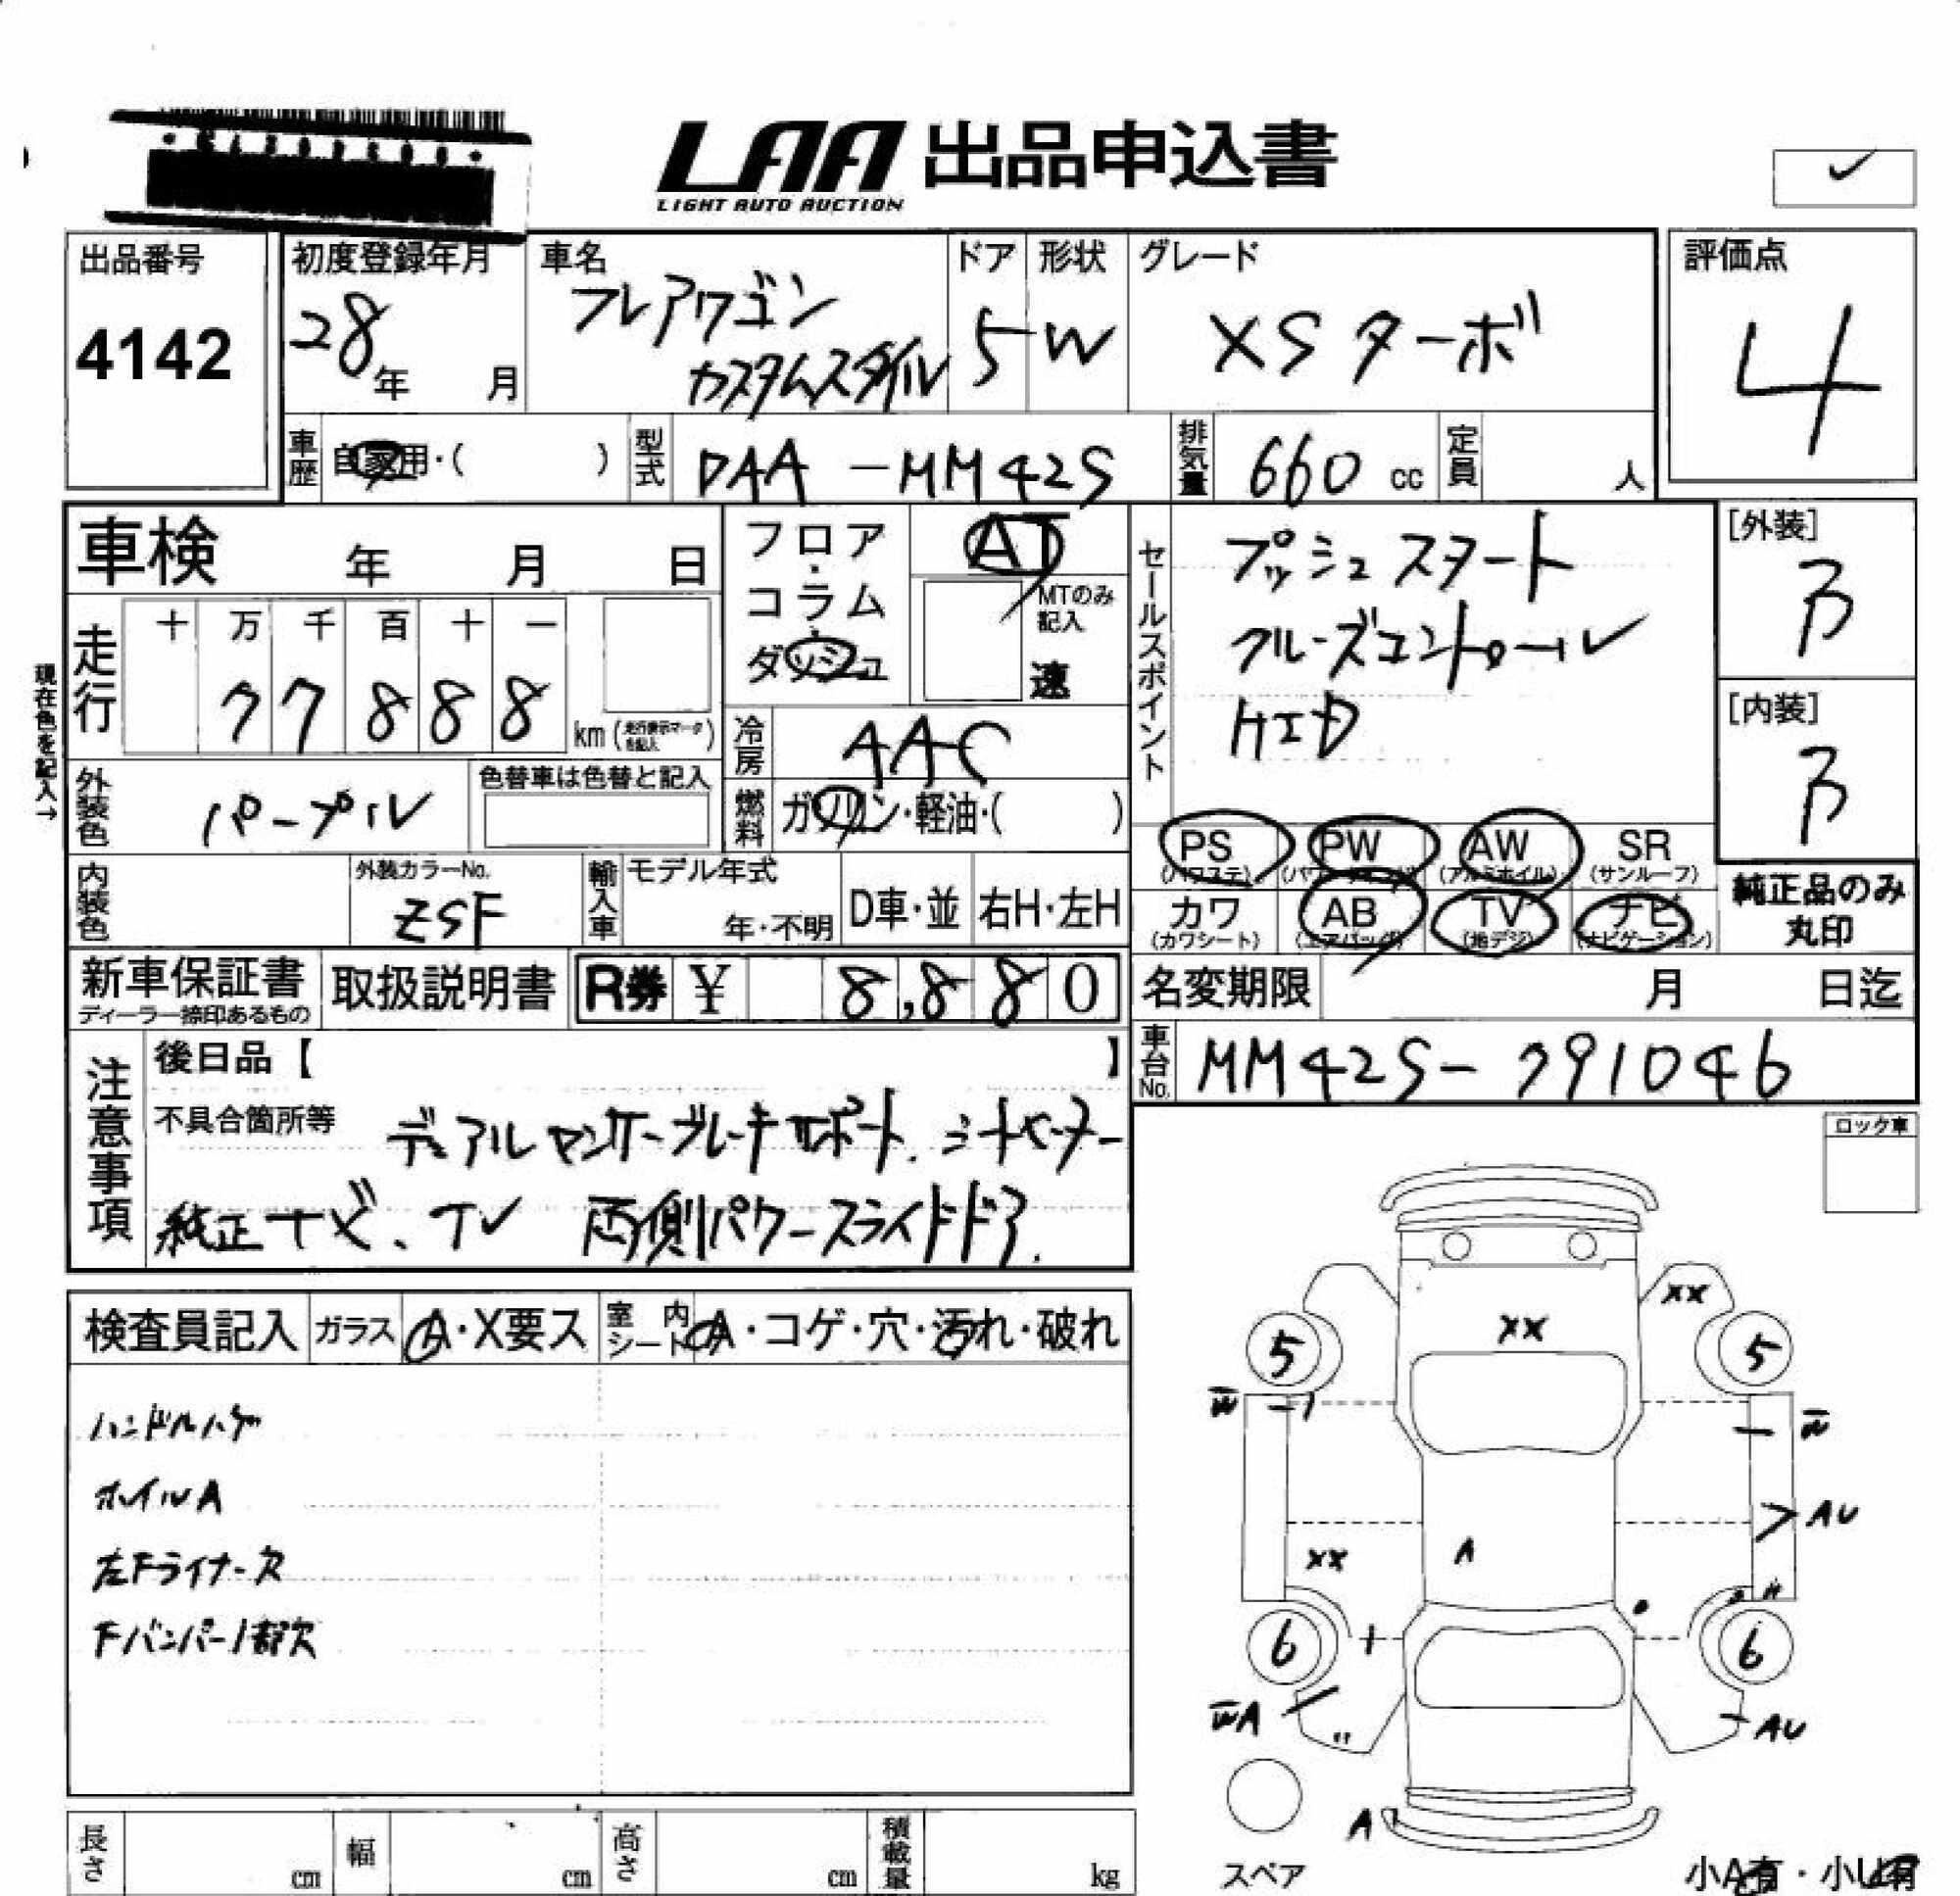 LAA 出品申込書
LIGHT AUTO AUCTION
出品番号
4142
初度登録年月
28年 月
車名
フレアワゴン
カスタムスタイル
ドア
5
形状
W
グレード
XSターボ
評価点
4
車歴 自家用・( )
型式 DAA-MM42S
排気量 660 cc
定員 人
車検 年 月 日
フロア・コラム・ダッシュ
AT
MTのみ記入
速
セールスポイント
プッシュスタート
クルーズコントロール
HID
[外装]
B
[内装]
B
現在色を記入→
走行
十 万 千 百 十 一
7 7 8 8 8 km (走行表示マークを記入)
冷房 AAC
外装色 パープル
色替車は色替と記入
燃料 ガソリン・軽油・( )
PS PW AW SR
(パワステ) (パワーウィンドウ) (アルミホイル) (サンルーフ)
カワ AB TV ナビ
(カワシート) (エアバッグ) (地デジ) (ナビゲーション)
純正品のみ
丸印
内装色
外装カラーNo.
ZSF
輸入車
モデル年式
年・不明
D車・並
右H・左H
新車保証書
ディーラー捺印あるもの
取扱説明書
R券 ¥ 8,880
名変期限 月 日迄
車台No. MM42S-791046
注意事項
後日品【 】
不具合箇所等 デュアルセンサーブレーキサポート、シートヒーター
純正ナビ、TV 両側パワースライドドア
ロック車
検査員記入
ガラス A・X要ス
室内シート A・コゲ・穴・汚れ・破れ
ハンドルハゲ
ホイルA
左Fライナー欠
Fバンパー1部欠
XX
XX
5
5
W
W
AU
XX
A
6
6
WA
AU
A
スペア
小A有・小U有
長さ cm
幅 cm
高さ cm
積載量 kg